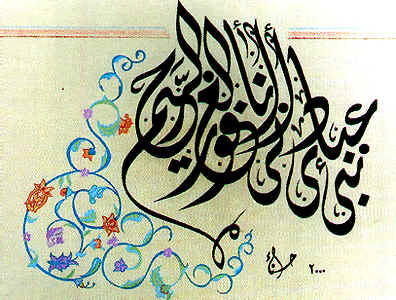 نبئ عبادي أني أنا الغفور الرحيم
٢٠٠٠